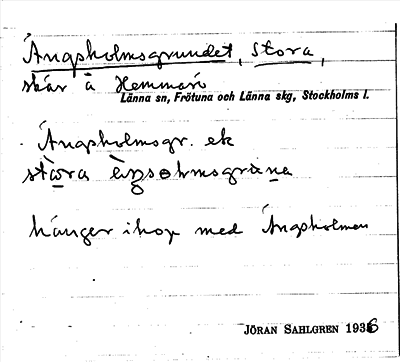 Ängsholmsgrundet, Stora,
skär å Hemmarö
Länna sn, Frötuna och Länna skg, Stockholms l.
Ängsholmsgr. ek
stora
hänger ihop med Ängsholmen
JÖRAN SAHLGREN 1936